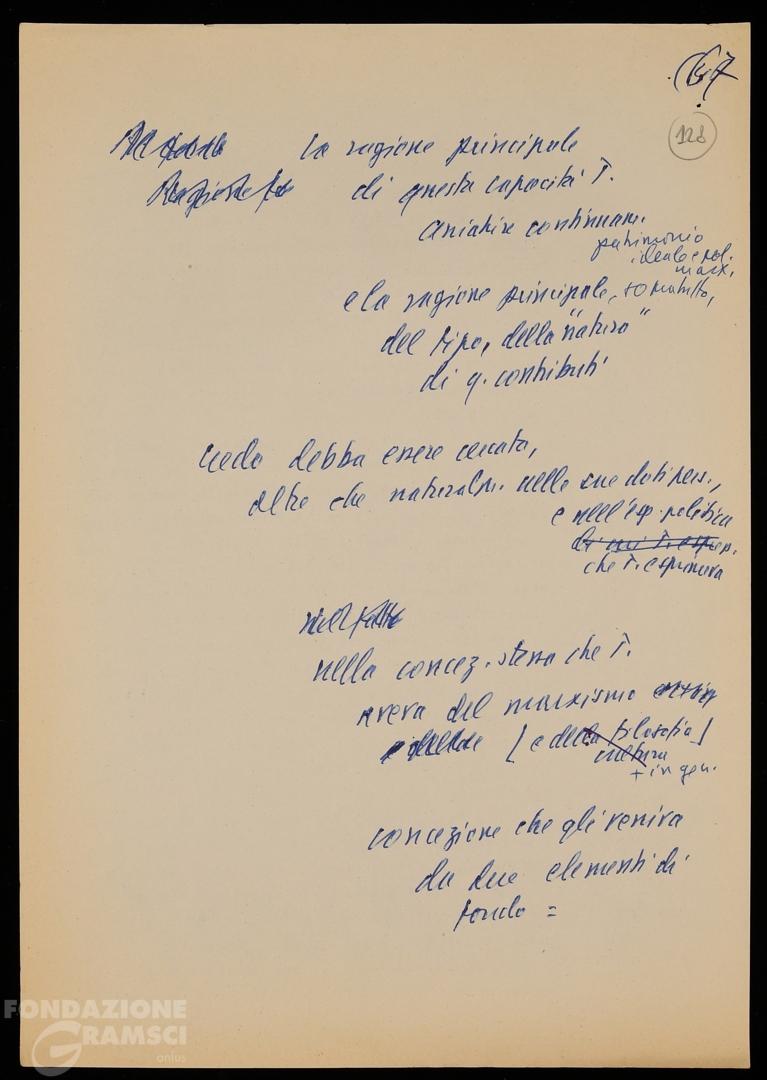 67
128
la ragione principale
di questa capacità T.
continuam.
patrimonio
ideale e pol.
marx.
e la ragione principale, soprattutto,
del tipo, della "natura"
di q. contributi
credo debba essere cercata,
oltre che naturalm. nelle sue doti pers.,
e nell'esp. politica
che T. esprimeva
nella concez. stessa che T.
aveva del marxismo
[e della filosofia]
cultura
+ in gen.
concezione che gli veniva
da due elementi di
fondo =
FONDAZIONE
GRAMSCI
onlus